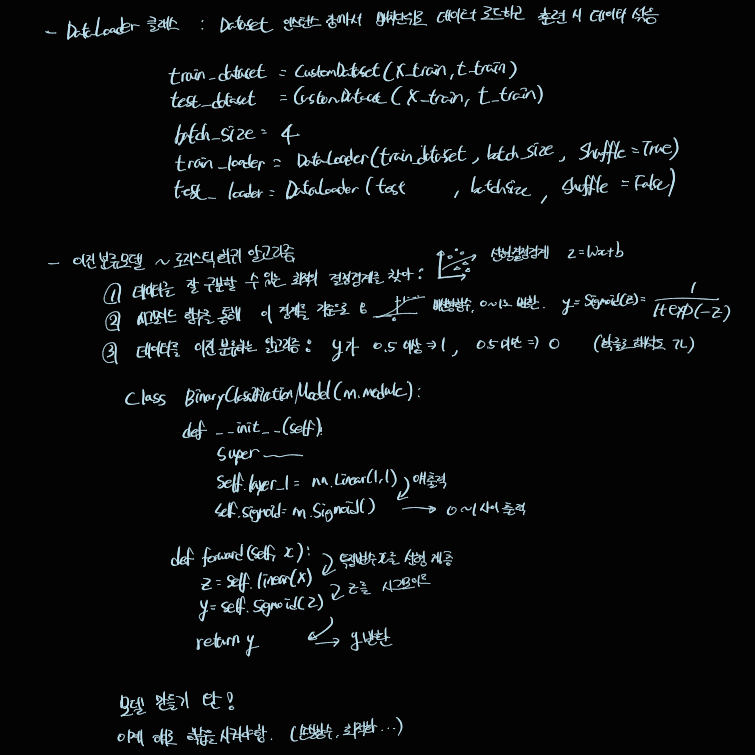 - DataLoader 클래스 : Dataset 인스턴스 참가서 배치단위로 데이터 로드하고 훈련 시 데이터 섞음
train_dataset = CustomDataset(x_train, t_train)
test_dataset = CustomDataset(x_train, t_train)
batch_size = 4
train_loader = DataLoader(train_dataset, batch_size, Shuffle=True)
test_loader = DataLoader(test , batchsize, Shuffle = False)
- 이진분류모델 ~ 로지스틱 회귀 알고리즘
① 데이터를 잘 구분할 수 있는 최적의 결정경계를 찾아 : 선형결정경계 z=Wx+b
② 시그모이드 함수를 통해 이 경계를 기준으로 비선형함수, 0~1로 변환. y=Sigmoid(z)= 1/1+exp(-z)
③ 데이터를 이진 분류하는 알고리즘 : y가 0.5 이상 ⇒ 1, 0.5 미만 ⇒ 0 (확률로 해석도 가능)
Class BinaryClassificationModel(nn.module):
def __init__(self):
Super
Self.layer_1 = nn.Linear(1,1) 입출력
Self.sigmoid = nn.Sigmoid() → 0~1 사이 출력
def forward(self, x):
z = self.linear(x) 독립변수 x를 선형 계층
y = self.sigmoid(z) z를 시그모이드
return y → y 반환
모델 만들기 단!
이제 학습을 시켜야함. (손실함수, 최적화...)